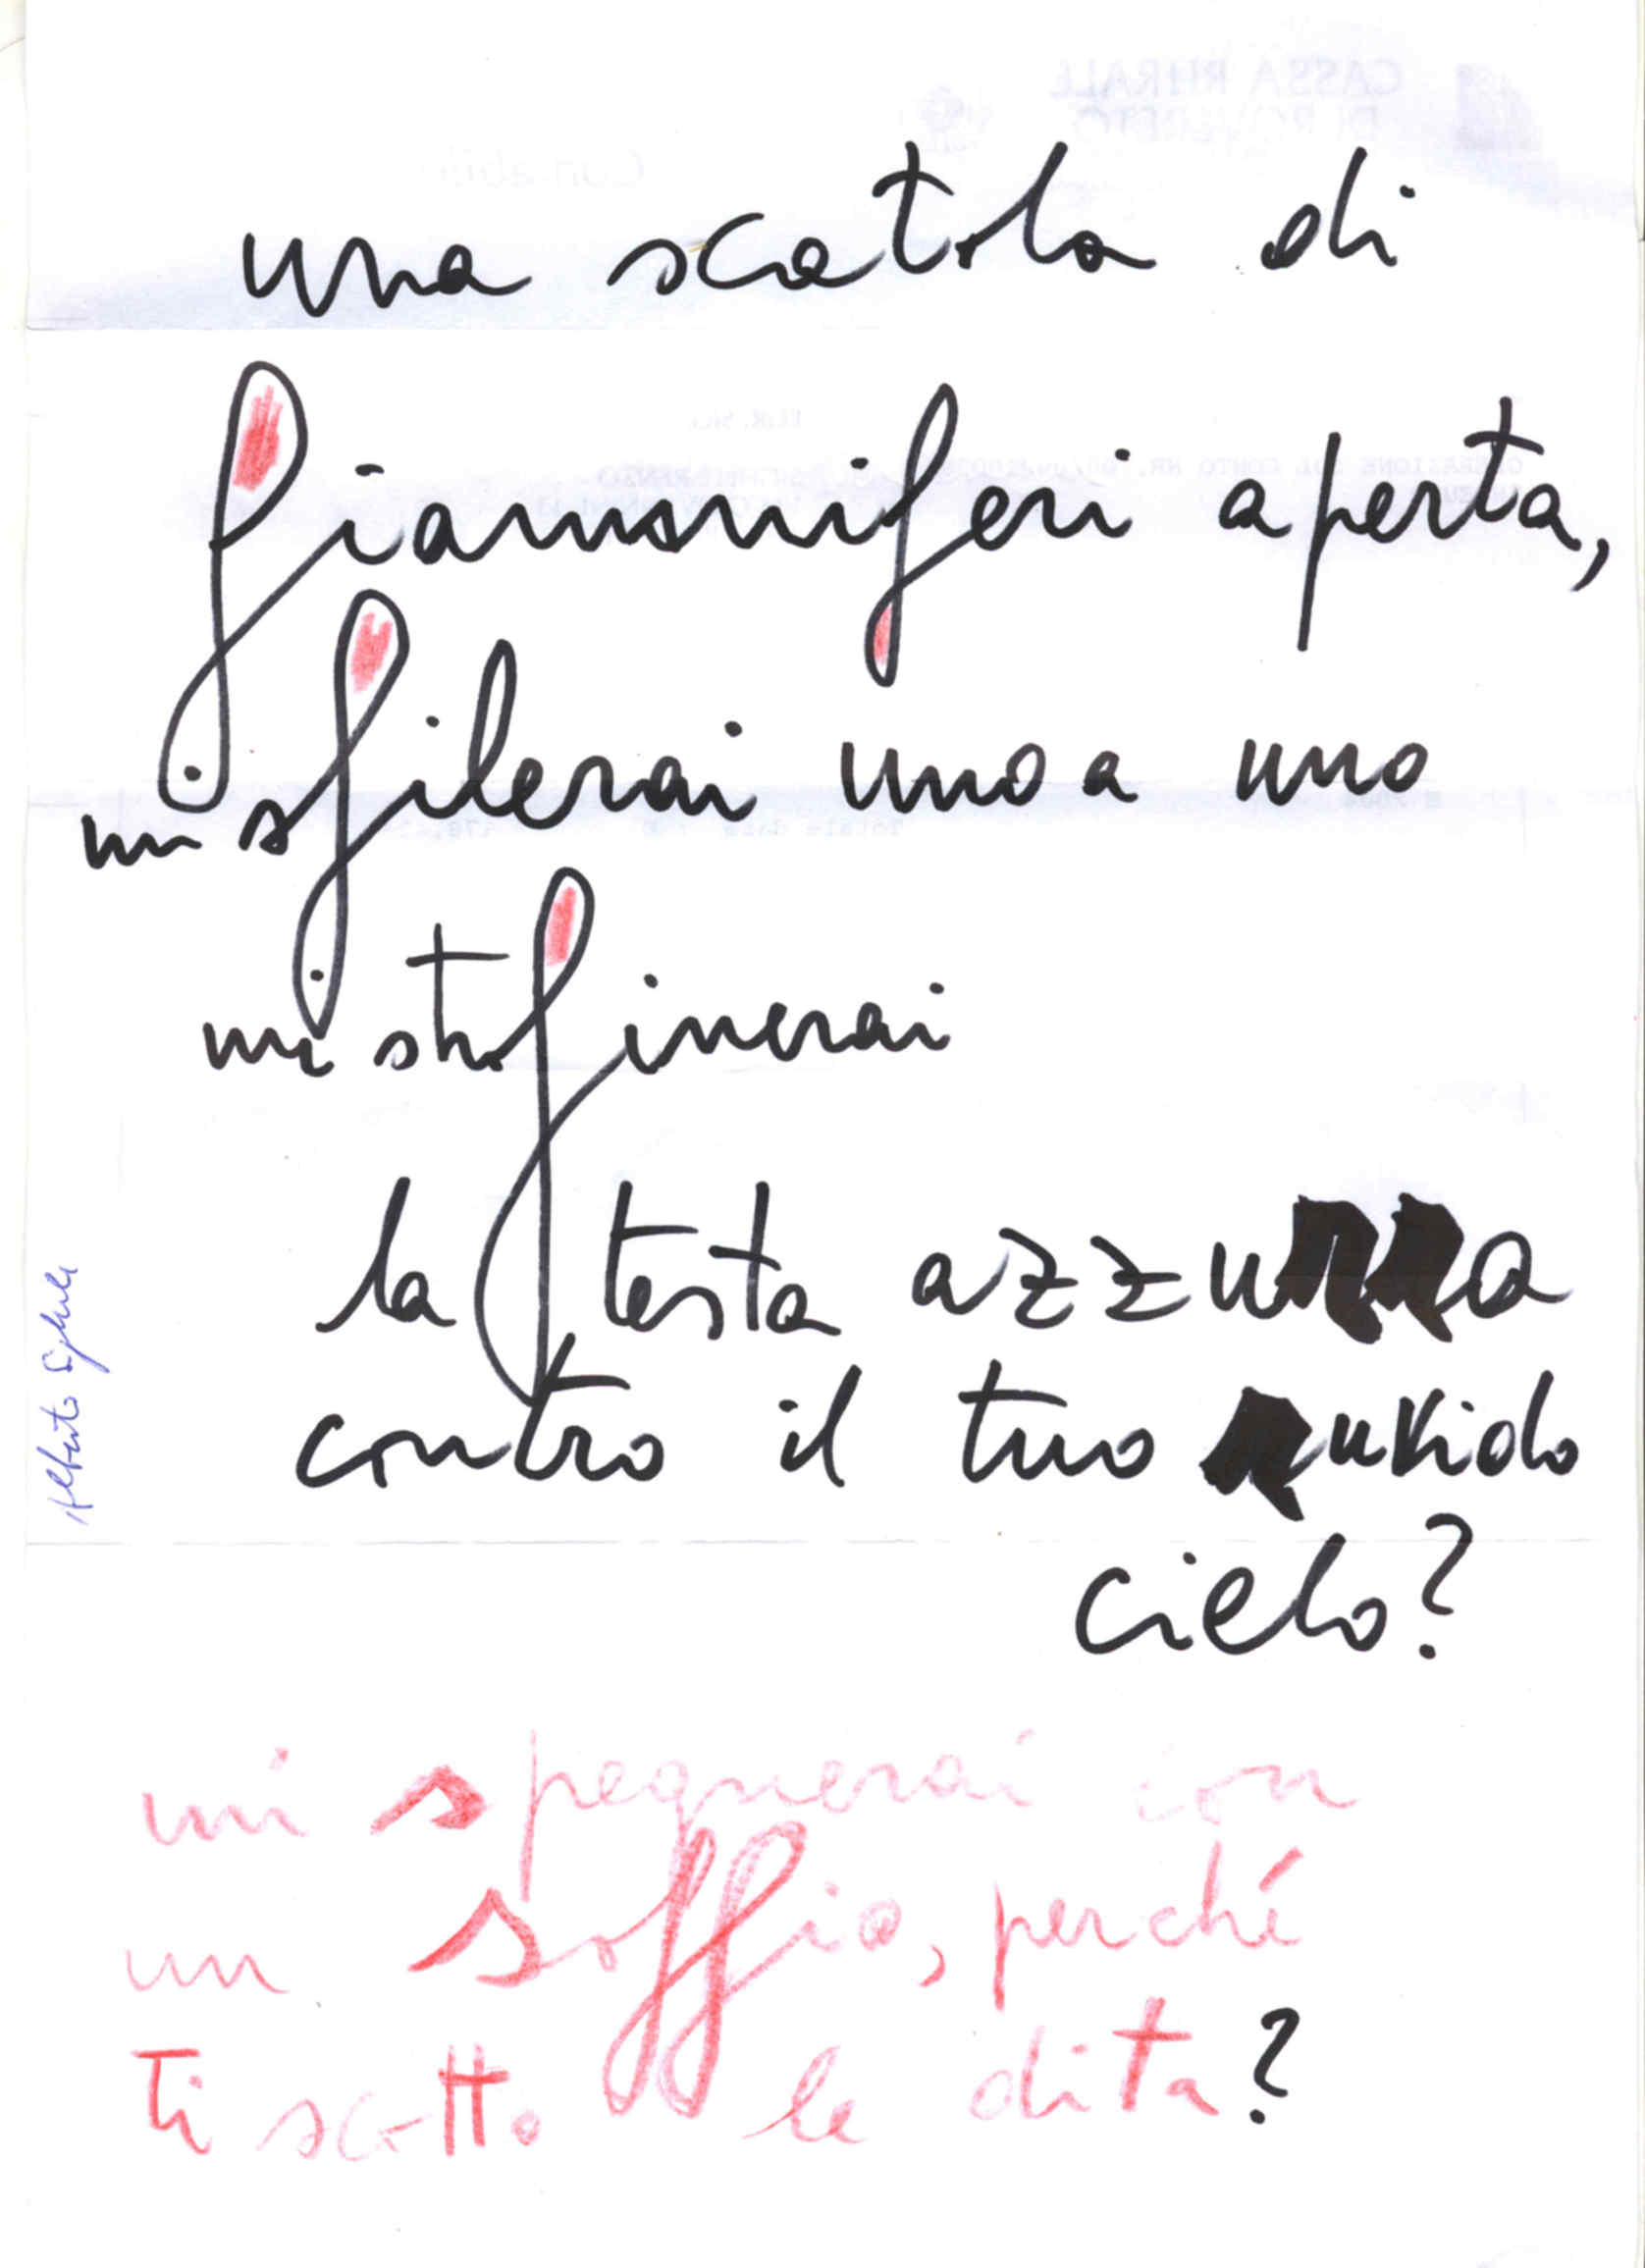 una scatola di
fiammiferi aperta,
mi sfilerai uno a uno
mi strofinerai
la testa azzurra
contro il tuo ruvido
cielo?
mi spegnerai con
un soffio, perché
ti scotto le dita?
Alberto
CASSA RURALE
DI ROVERETO